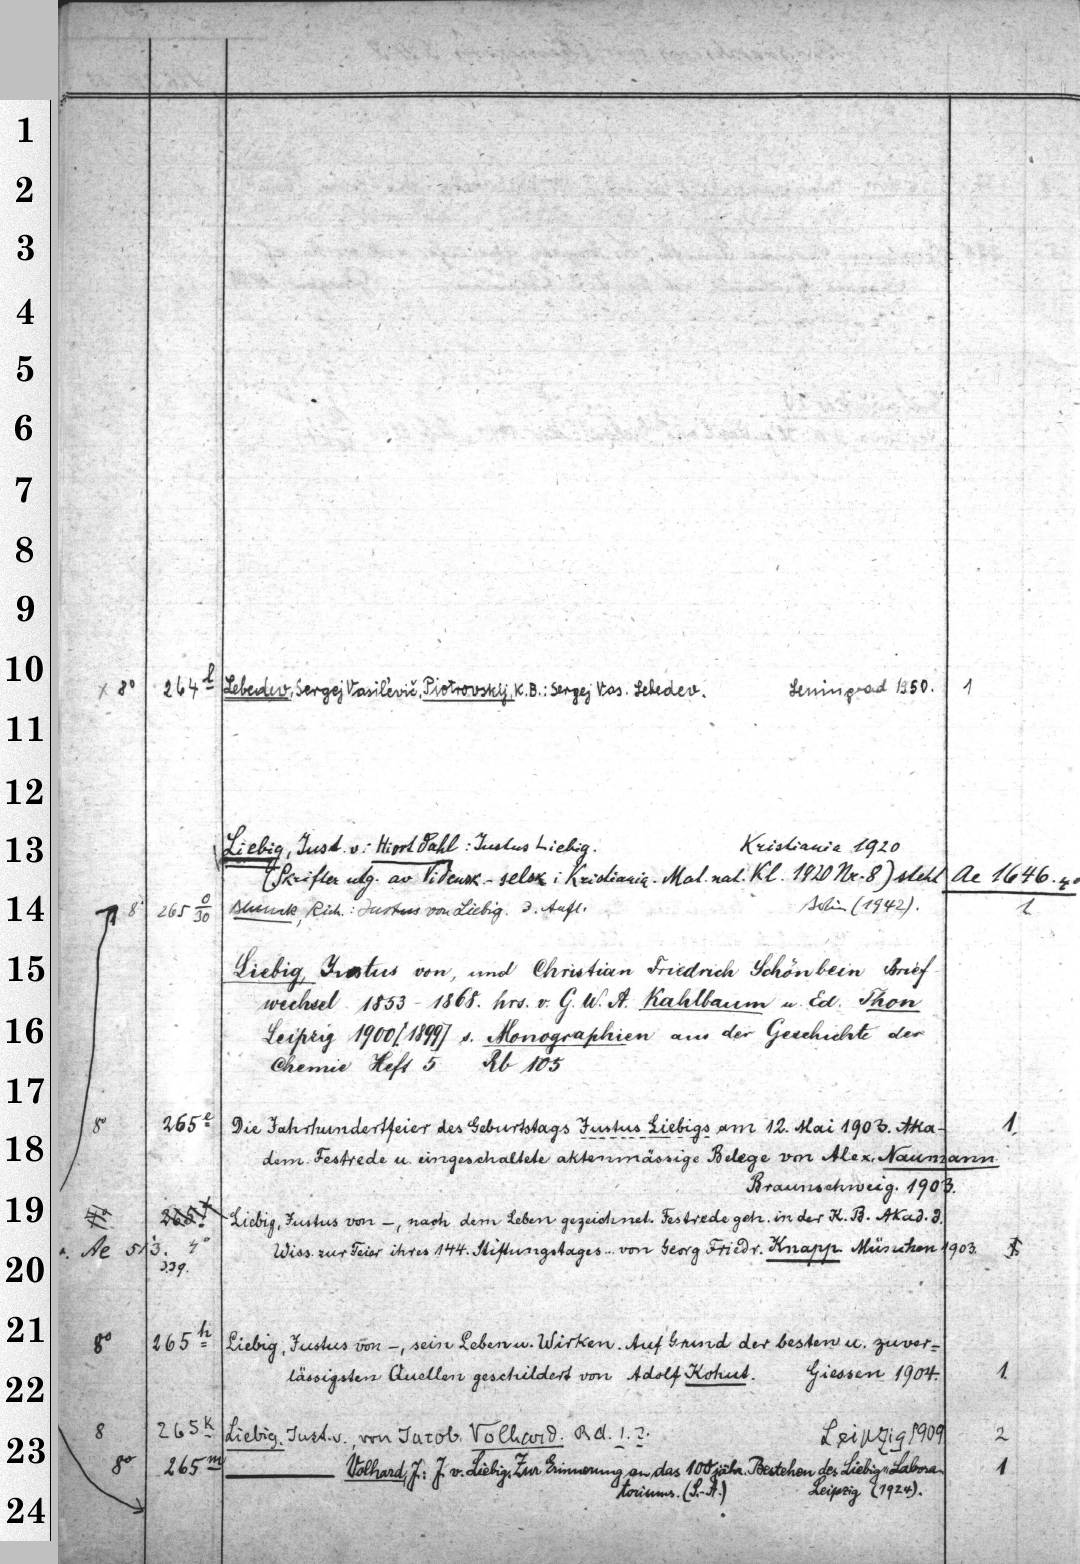 1
2
3
4
5
6
7
8
9
10
x 8° 264 l Lebedev, Sergej Vasil'evič, Piotrovskij, K.B.: Sergej Vas. Lebedev. Leningrad 1950. 1
11
12
13
Liebig, Just. v.: Hiort Dahl: Justus Liebig. Kristiania 1920
(Skrifter utg. av Vidensk.-selsk i Kristiania. Mat. nat. Kl. 1920 Nr. 8) steht Ae 1646. 4°
14
8° 265 0/30 Blunck, Rich.: Justus von Liebig. 3. Aufl. Berlin (1942). 1
15
Liebig, Justus von, und Christian Friedrich Schönbein Brief
wechsel 1853 - 1868. hrs. v. G. W. A. Kahlbaum u. Ed. Thon
16
Leipzig 1900 [1899] s. Monographien aus der Geschichte der
Chemie Heft 5 Rb 105
17
8° 265 e Die Jahrhundertfeier des Geburtstags Justus Liebigs am 12. Mai 1903. Aka- 1.
18
dem. Festrede u. eingeschaltete aktenmässige Belege von Alex. Naumann
Braunschweig. 1903.
19
Liebig, Justus von –, nach dem Leben gezeichnet. Festrede geh. in der K. B. Akad. d.
Ae 513. 4° Wiss. zur Feier ihres 144. Stiftungstages... von Georg Friedr. Knapp München 1903.
20
21
8° 265 h Liebig, Justus von –, sein Leben u. Wirken. Auf Grund der besten u. zuver=
22
lässigsten Quellen geschildert von Adolf Kohut. Giessen 1904. 1
8 265 k Liebig, Just. v., von Jacob Volhard. Bd. 1. 2. Leipzig 1909 2
23
8° 265 m Volhard, J.: J. v. Liebig. Zur Erinnerung an das 100 jähr. Bestehen des Liebig-Labora- 1
toriums. (S.-A.) Leipzig (1924).
24